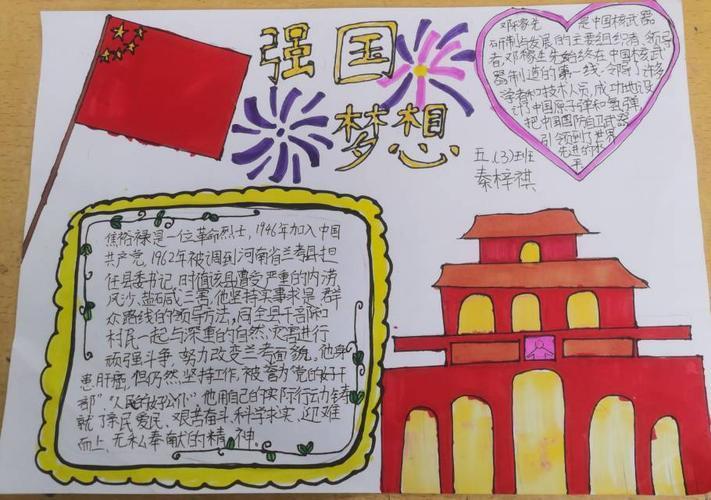 强国
梦想
邓稼先 是中国核武器
研制与发展的主要组织者、领导
者,邓稼先始终在中国核武
器制造的第一线,领了许多
学者和技术人员,成功地设
计了中国原子弹和氢弹,
把中国国防自卫武器
引领到了世界
先进的水
平
五.(3)班
秦梓祺
焦裕禄是一位革命烈士,1946年加入中国
共产党,1962年被调到河南省兰考县担
任县委书记,时值该县遭受严重的内涝
风沙、盐碱三害,他坚持实事求是 群
众路线的领导方法,同全县干部和
村民一起与深重的自然灾害进行
顽强斗争,努力改变兰考面貌。他身
患肝癌,但仍然坚持工作,被誉为"党的好干
部""人民的好公仆"他用自己的实际行动铸
就了亲民爱民、艰苦奋斗、科学求实、迎难
而上、无私奉献的精神。